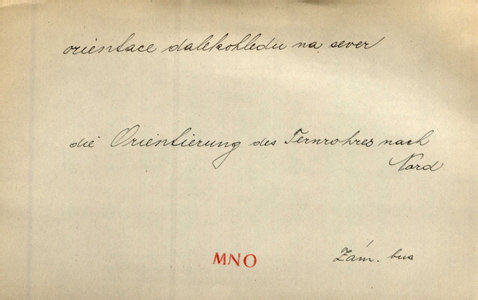 orientace dalekohledu na sever
die Orientierung des Fernrohres nach
Nord
MNO Zám. bus